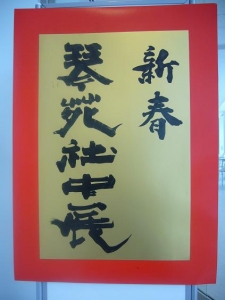 新春
琴苑社中展